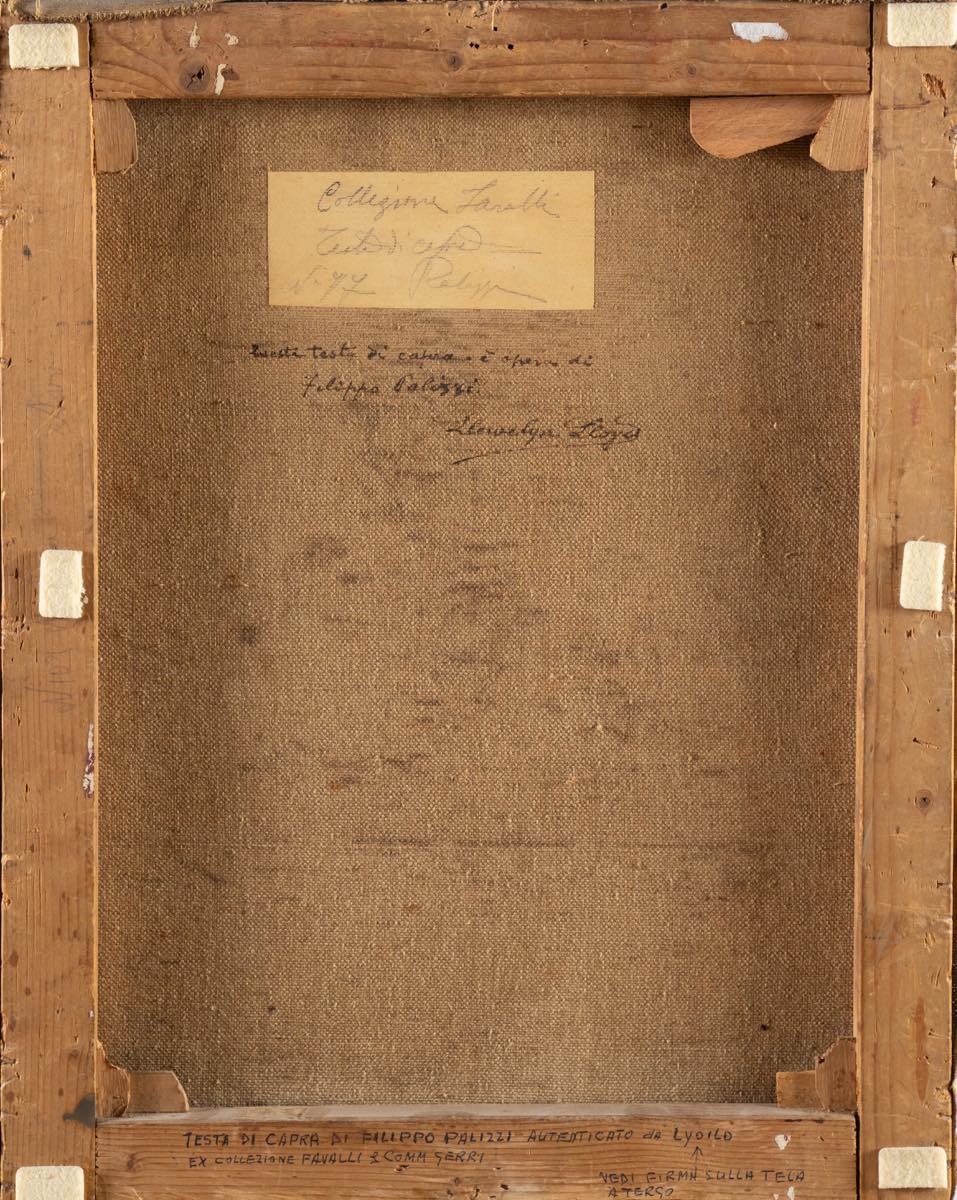 Collezione Favalli
Testa di capra
N. 77 Palizzi
Questa testa di capra è opera di
Filippo Palizzi.
Llewelyn Lloyd
TESTA DI CAPRA DI FILIPPO PALIZZI AUTENTICATO da LYOILD
EX COLLEZIONE FAVALLI & COMM GERRI
VEDI FIRMA SULLA TELA
A TERGO